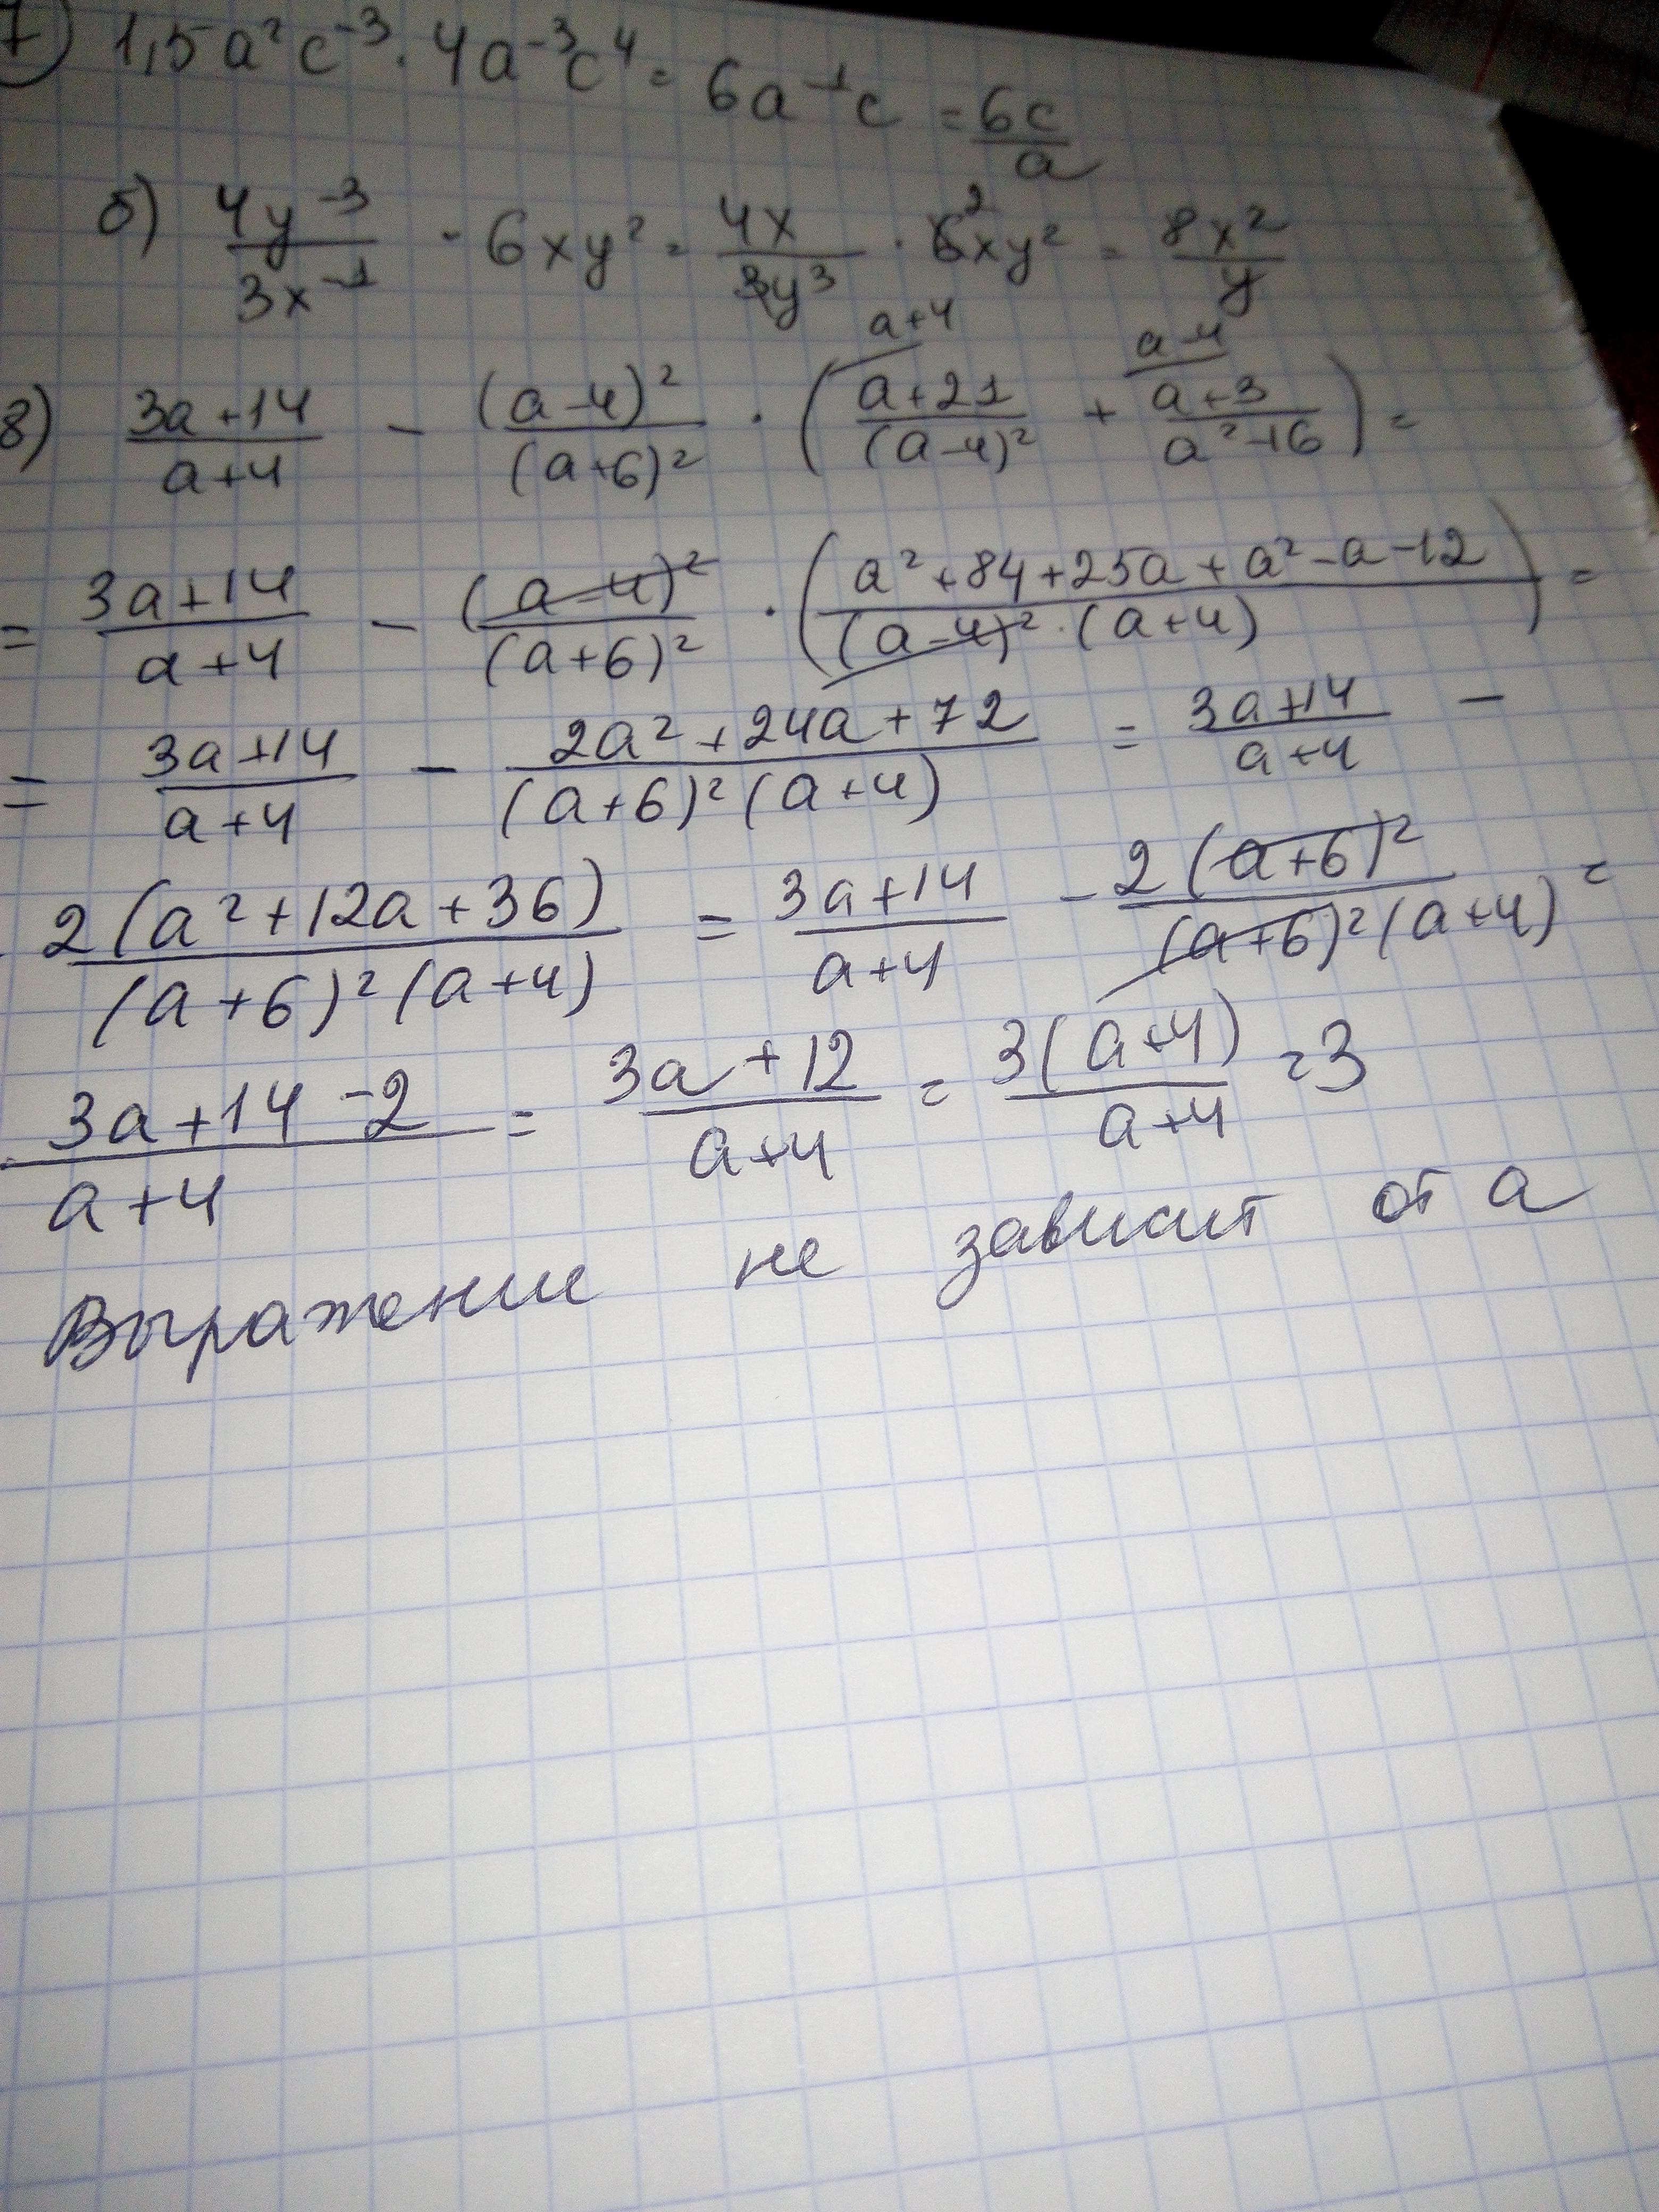 7) 1,5a²c⁻³ · 4a⁻³c⁴ = 6a⁻¹c = 6c/a
б) 4y⁻³/3x⁻¹ · 6xy² = 4x/3y³ · 6²xy² = 8x²/y
a+4 a-4
8) (3a+14)/(a+4) - (a-4)²/(a+6)² · ((a+21)/(a-4)² + (a+3)/(a²-16)) =
= (3a+14)/(a+4) - (a-4)²/(a+6)² · ((a²+84+25a+a²-a-12)/((a-4)²·(a+4))) =
= (3a+14)/(a+4) - (2a²+24a+72)/((a+6)²(a+4)) = (3a+14)/(a+4) -
- 2(a²+12a+36)/((a+6)²(a+4)) = (3a+14)/(a+4) - 2(a+6)²/((a+6)²(a+4)) =
(3a+14-2)/(a+4) = (3a+12)/(a+4) = 3(a+4)/(a+4) = 3
Выражение не зависит от a